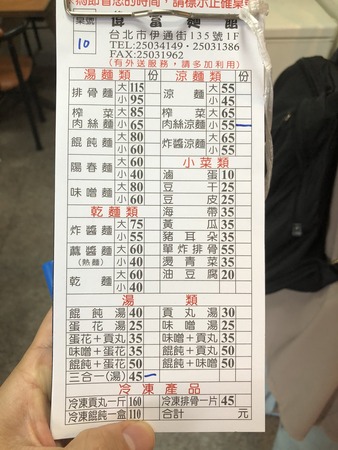 節省您的時間，請標示正確桌
桌號
10
富麵館
台北市伊通街135號1F
TEL:25034149・25031386
FAX:25031962
(有外送服務，請多加利用)
湯麵類 份 涼麵類 份
排骨麵 大 115 小 95
涼麵 大 55 小 45
榨菜肉絲麵 大 85 小 65
榨菜肉絲涼麵 大 65 小 55
餛飩麵 大 80 小 60
炸醬涼麵 大 65 小 55
陽春麵 大 60 小 40
小菜類
滷蛋 10
豆干 25
味噌麵 大 80 小 60
豆皮 25
海帶 35
乾麵類
黃瓜 35
炸醬麵 大 75 小 55
豬耳朵 35
單炸排骨 55
蔴醬麵 (熱麵) 大 60 小 40
燙青菜 35
油豆腐 20
乾麵 大 60 小 40
湯類
餛飩湯 40 貢丸湯 30
蛋花湯 25 味噌湯 25
蛋花+貢丸 35 味噌+貢丸 35
味噌+蛋花 35 餛飩+貢丸 50
餛飩+蛋花 50 餛飩+味噌 50
三合一(湯) 45
冷凍產品
冷凍貢丸一斤 160 冷凍排骨一片 45
冷凍餛飩一盒 110 合計 元